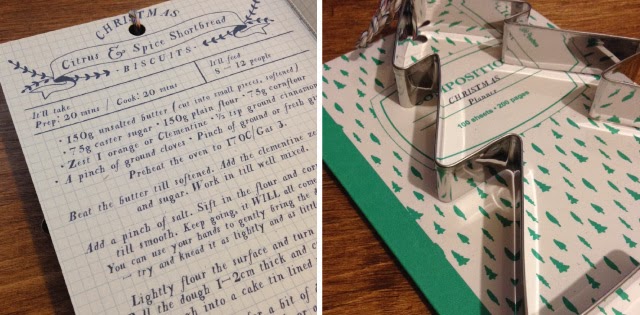 CHRISTMAS
Citrus & Spice Shortbread
· BISCUITS ·
It'll take
Prep: 20 mins / Cook: 20 mins
It'll feed
8 - 12 people
· 150g unsalted butter (cut into small pieces, softened)
· 75g caster sugar · 150g plain flour · 75g cornflour
· Zest 1 orange or Clementine · ½ tsp ground cinnamon
· A pinch of ground cloves · Pinch of ground or fresh
Preheat the oven to 170C/Gas 3.
Beat the butter till softened. Add the clementine
and sugar. Work in till well mixed.
Add a pinch of salt. Sift in the flour and
till smooth. Keep going, it WILL all come
You can use your hands to gently bring the
- try and knead it as lightly and as
Lightly flour the surface and turn
the dough 1-2cm thick and
into a cake tin lined
for a bit of
COMPOSITION
CHRISTMAS
Planner
100 sheets · 200 pages